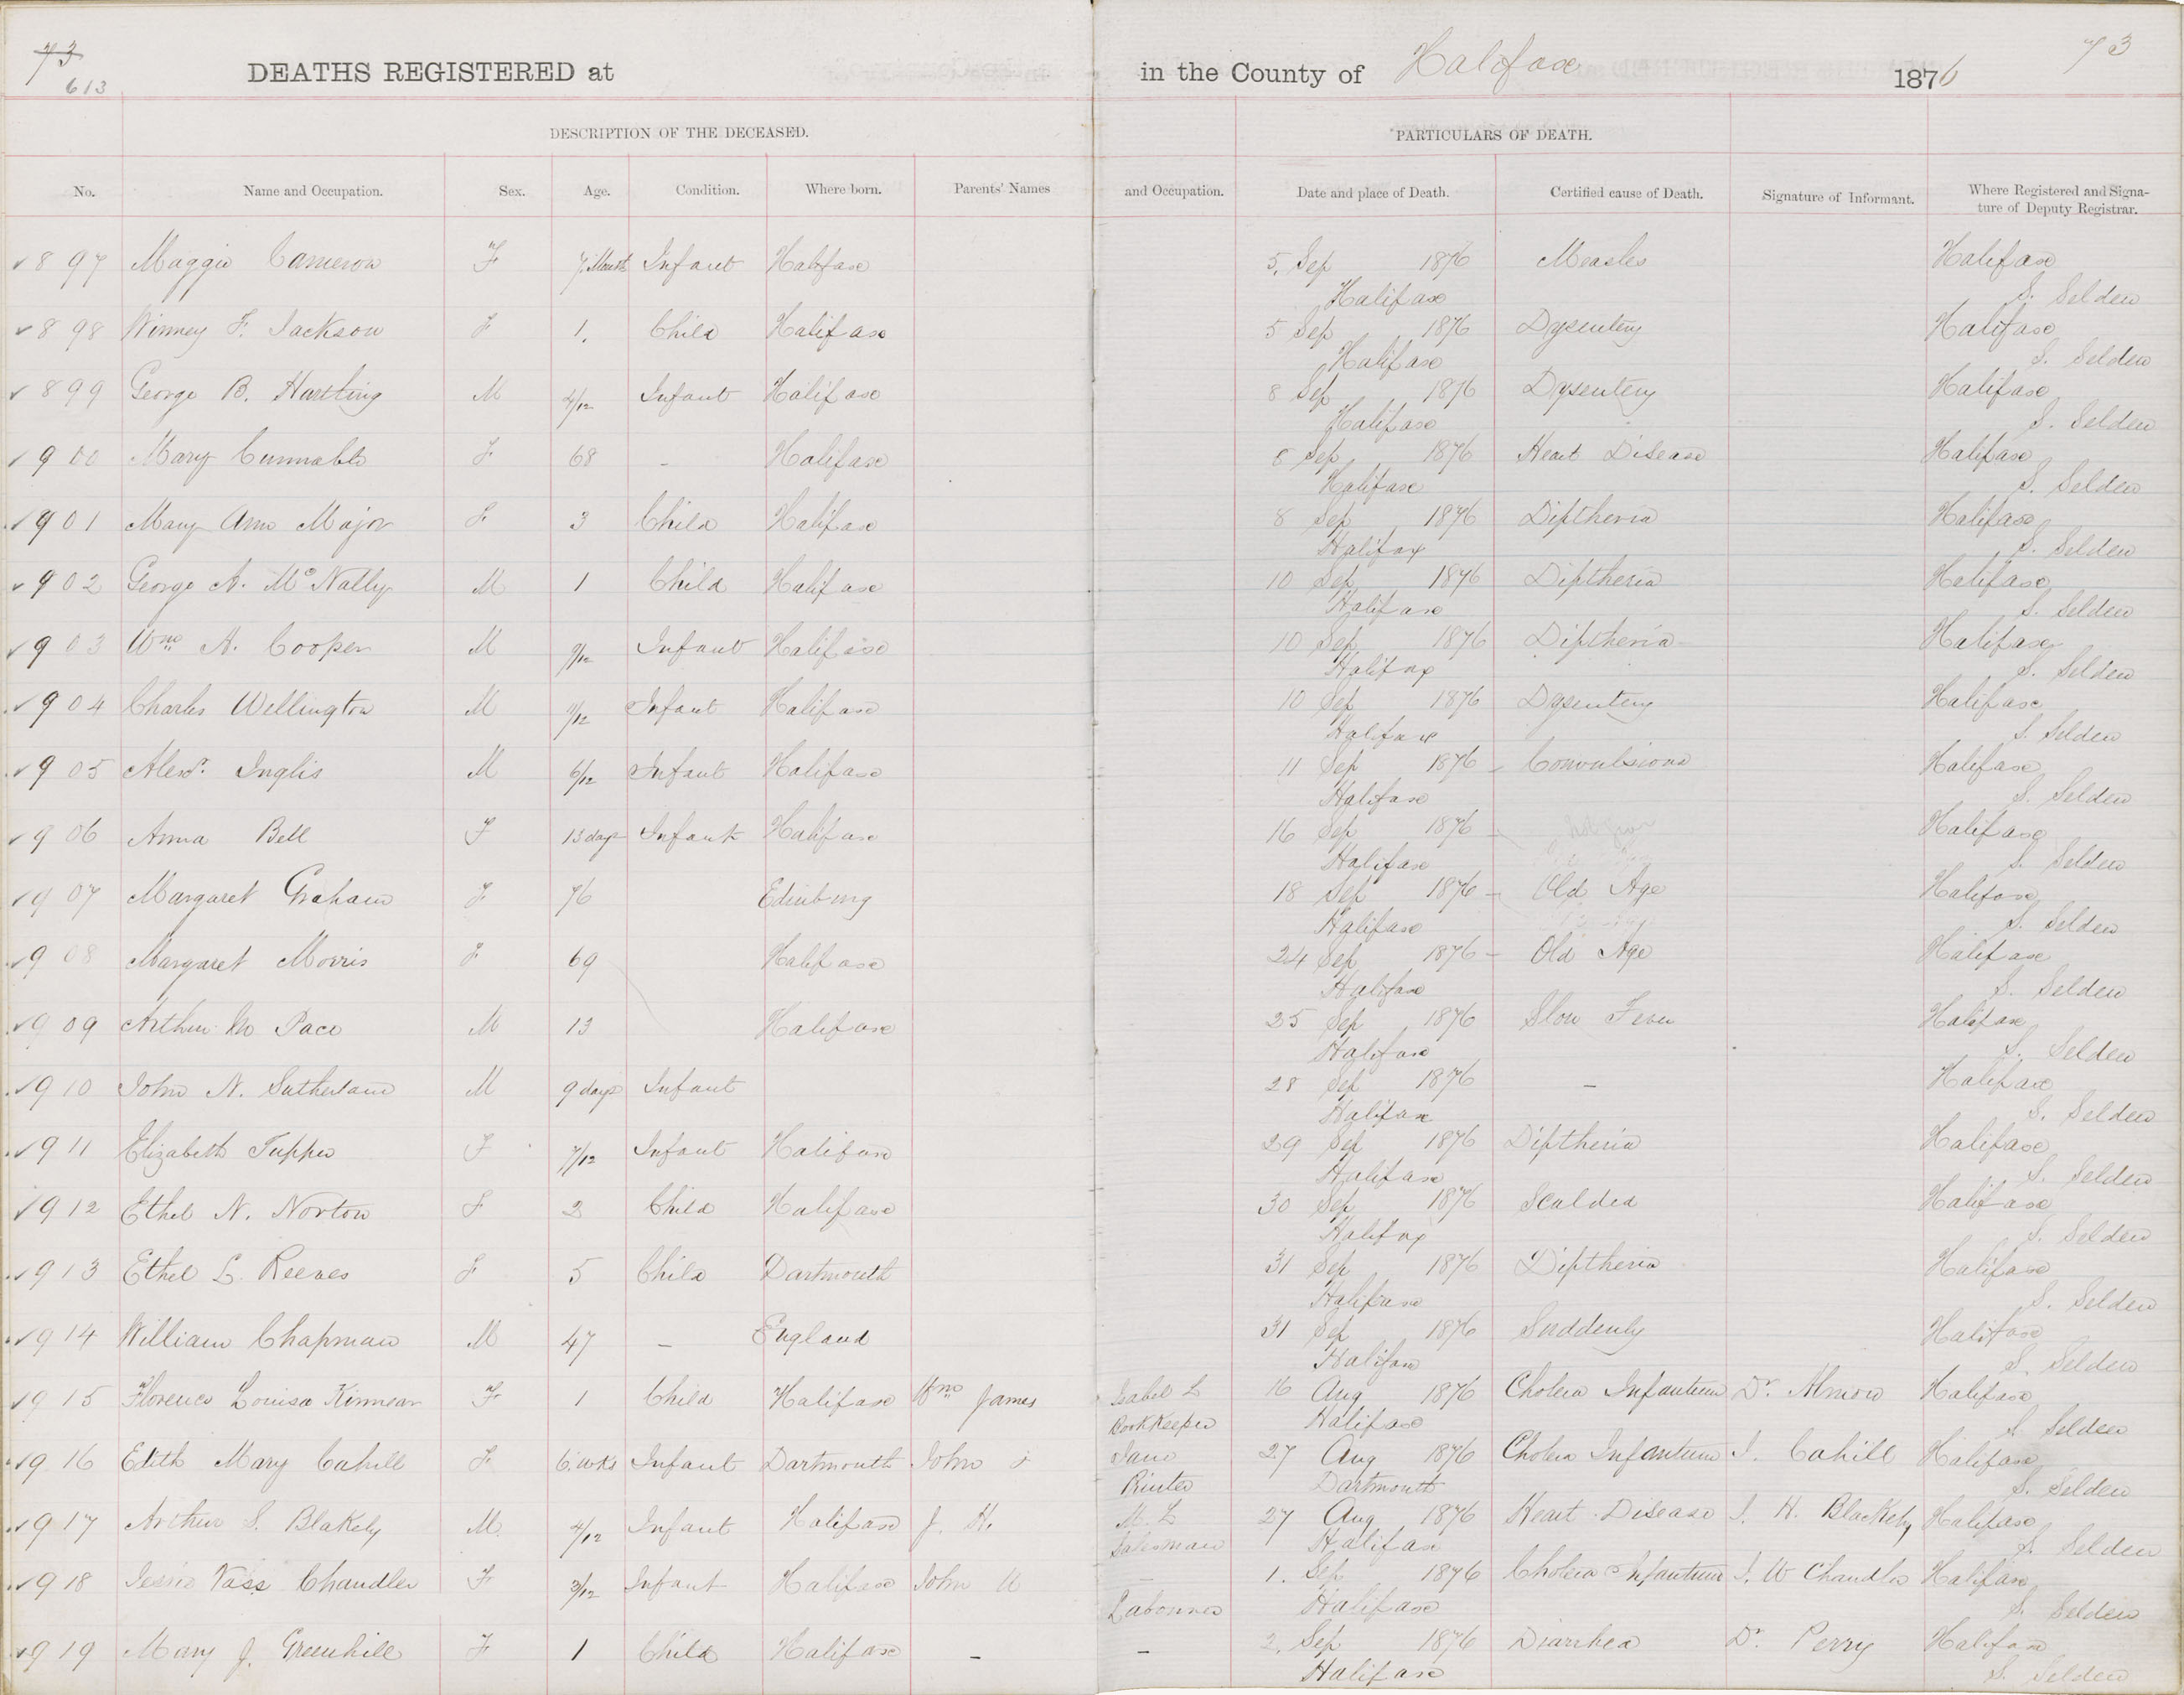 73
613
DEATHS REGISTERED at in the County of Halifax 1876 73
DESCRIPTION OF THE DECEASED. PARTICULARS OF DEATH.
No. Name and Occupation. Sex. Age. Condition. Where born. Parents' Names and Occupation. Date and place of Death. Certified cause of Death. Signature of Informant. Where Registered and Signa-
ture of Deputy Registrar.
897 Maggie Cameron F 7 Months Infant Halifax 5. Sep 1876 Measles Halifax
Halifax S. Selden
898 Winney F. Jackson F 1. Child Halifax 5 Sep 1876 Dysentery Halifax
Halifax S. Selden
899 George B. Hartling M 4/12 Infant Halifax 8 Sep 1876 Dysentery Halifax
Halifax S. Selden
900 Mary Cunnabls F 68 - Halifax 8 Sep 1876 Heart Disease Halifax
Halifax S. Selden
901 Mary Ann Major F 3 Child Halifax 8 Sep 1876 Diptheria Halifax
Halifax S. Selden
902 George A. McNally M 1 Child Halifax 10 Sep 1876 Diptheria Halifax
Halifax S. Selden
903 Wm A. Cooper M 9/12 Infant Halifax 10 Sep 1876 Diptheria Halifax
Halifax S. Selden
904 Charles Wellington M /12 Infant Halifax 10 Sep 1876 Dysentery Halifax
Halifax S. Selden
905 Alexr. Inglis M 6/12 Infant Halifax 11 Sep 1876 - Convulsions Halifax
Halifax S. Selden
906 Anna Bell F 13 days Infant Halifax 16 Sep 1876 - Halifax
Halifax S. Selden
907 Margaret Graham F 76 Edinburg 18 Sep 1876 - Old Age Halifax
Halifax S. Selden
908 Margaret Morris F 69 Halifax 24 Sep 1876 - Old Age Halifax
Halifax S. Selden
909 Arthur M Pace M 13 Halifax 25 Sep 1876 Slow Fever Halifax
Halifax S. Selden
910 John N. Sutherland M 9 days Infant 28 Sep 1876 - Halifax
Halifax S. Selden
911 Elizabeth Tupper F 7/12 Infant Halifax 29 Sep 1876 Diptheria Halifax
Halifax S. Selden
912 Ethel N. Norton F 2 Child Halifax 30 Sep 1876 Scalded Halifax
Halifax S. Selden
913 Ethel L. Reeves F 5 Child Dartmouth 31 Sep 1876 Diptheria Halifax
Halifax S. Selden
914 William Chapman M 47 - England 31 Sep 1876 Suddenly Halifax
Halifax S. Selden
915 Florence Louisa Kinnear F 1 Child Halifax Wm James Isabel L 16 Aug 1876 Cholera Infantum Dr. Almon Halifax
Bookkeeper Halifax S Selden
916 Edith Mary Cahill F 6. wks Infant Dartmouth John & Jane 27 Aug 1876 Cholera Infantum J. Cahill Halifax
Printer Dartmouth S. Selden
917 Arthur S. Blakely M 4/12 Infant Halifax J. H. M. L 27 Aug 1876 Heart Disease J. H. Blackely Halifax
Salesman Halifax S. Selden
918 Jessie Vass Chandler F 3/12 Infant Halifax John W - 1. Sep 1876 Cholera Infantum J. W Chandler Halifax
Labourer Halifax S. Selden
919 Mary J. Greenhill F 1 Child Halifax - - 2. Sep 1876 Diarrhea Dr. Perry Halifax
Halifax S. Selden